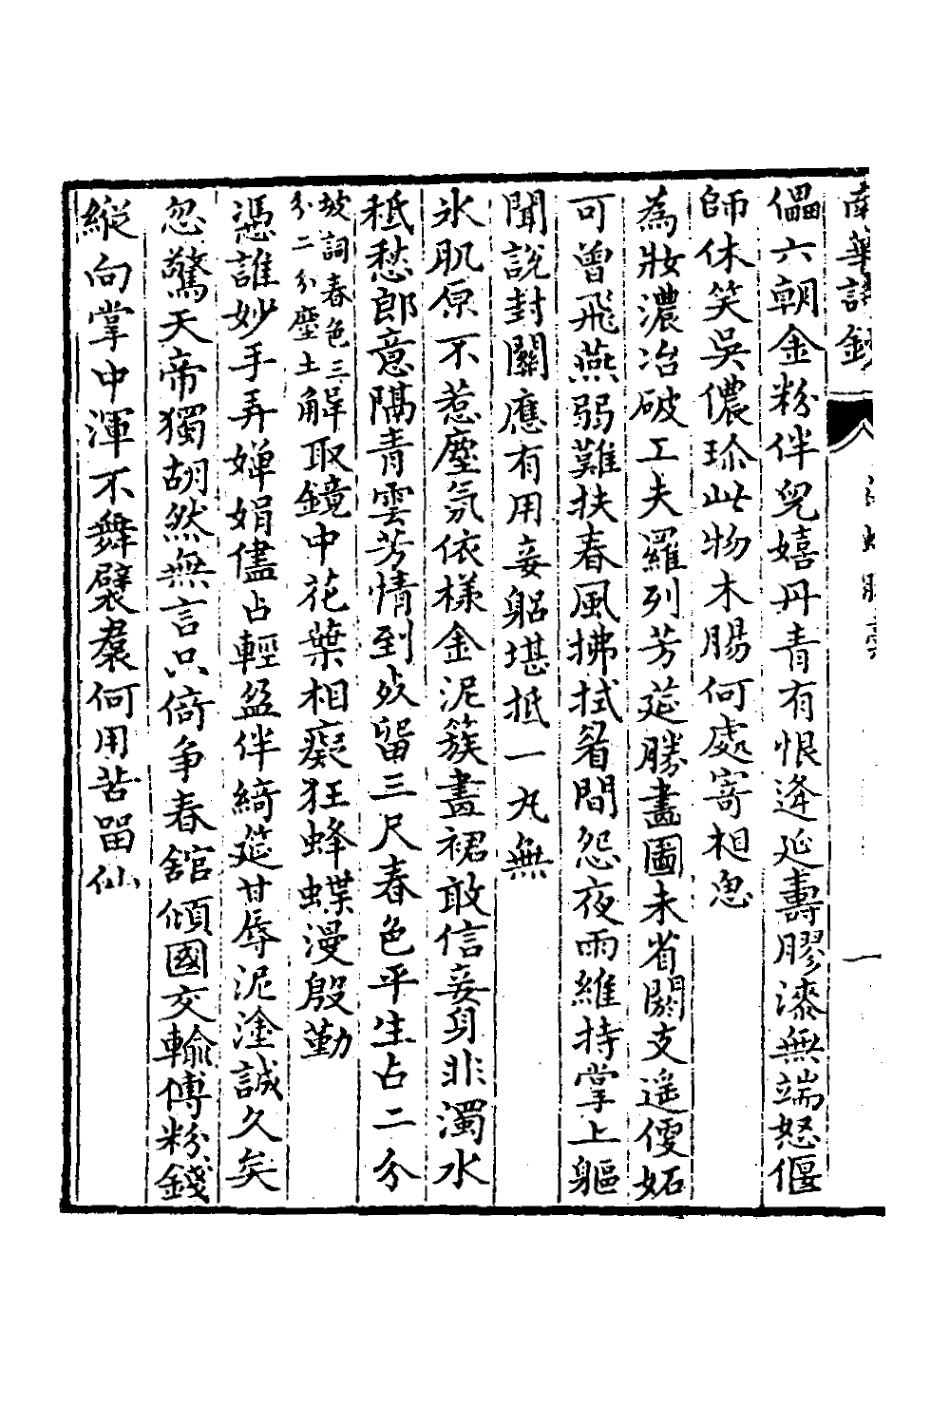 南華詩鈔
一
儡六朝金粉伴兒嬉丹青有恨逢延壽膠漆無端怒偃
師休笑吳儂珎此物木腸何處寄相思
為妝濃冶破工夫羅列芳莚勝畫圖未省閼支遥㥄妬
可曾飛燕弱難扶春風拂拭眉間怨夜雨維持掌上軀
聞說封關應有用妾躬堪抵一丸無
氷肌原不惹塵氛依樣金泥簇畫裙敢信妾身非濁水
秪愁郎意隔青雲芳情到㱁留三尺春色平生占二分
坡詞春色三分二分塵土解取鏡中花葉相癡狂蜂蝶漫殷勤
憑誰妙手弄嬋娟儘占輕盈伴綺莚甘辱泥塗誠久矣
忽驚天帝獨胡然無言只倚争春舘傾國交輸傅粉錢
縱向掌中渾不舞襞羣何用苦留仙